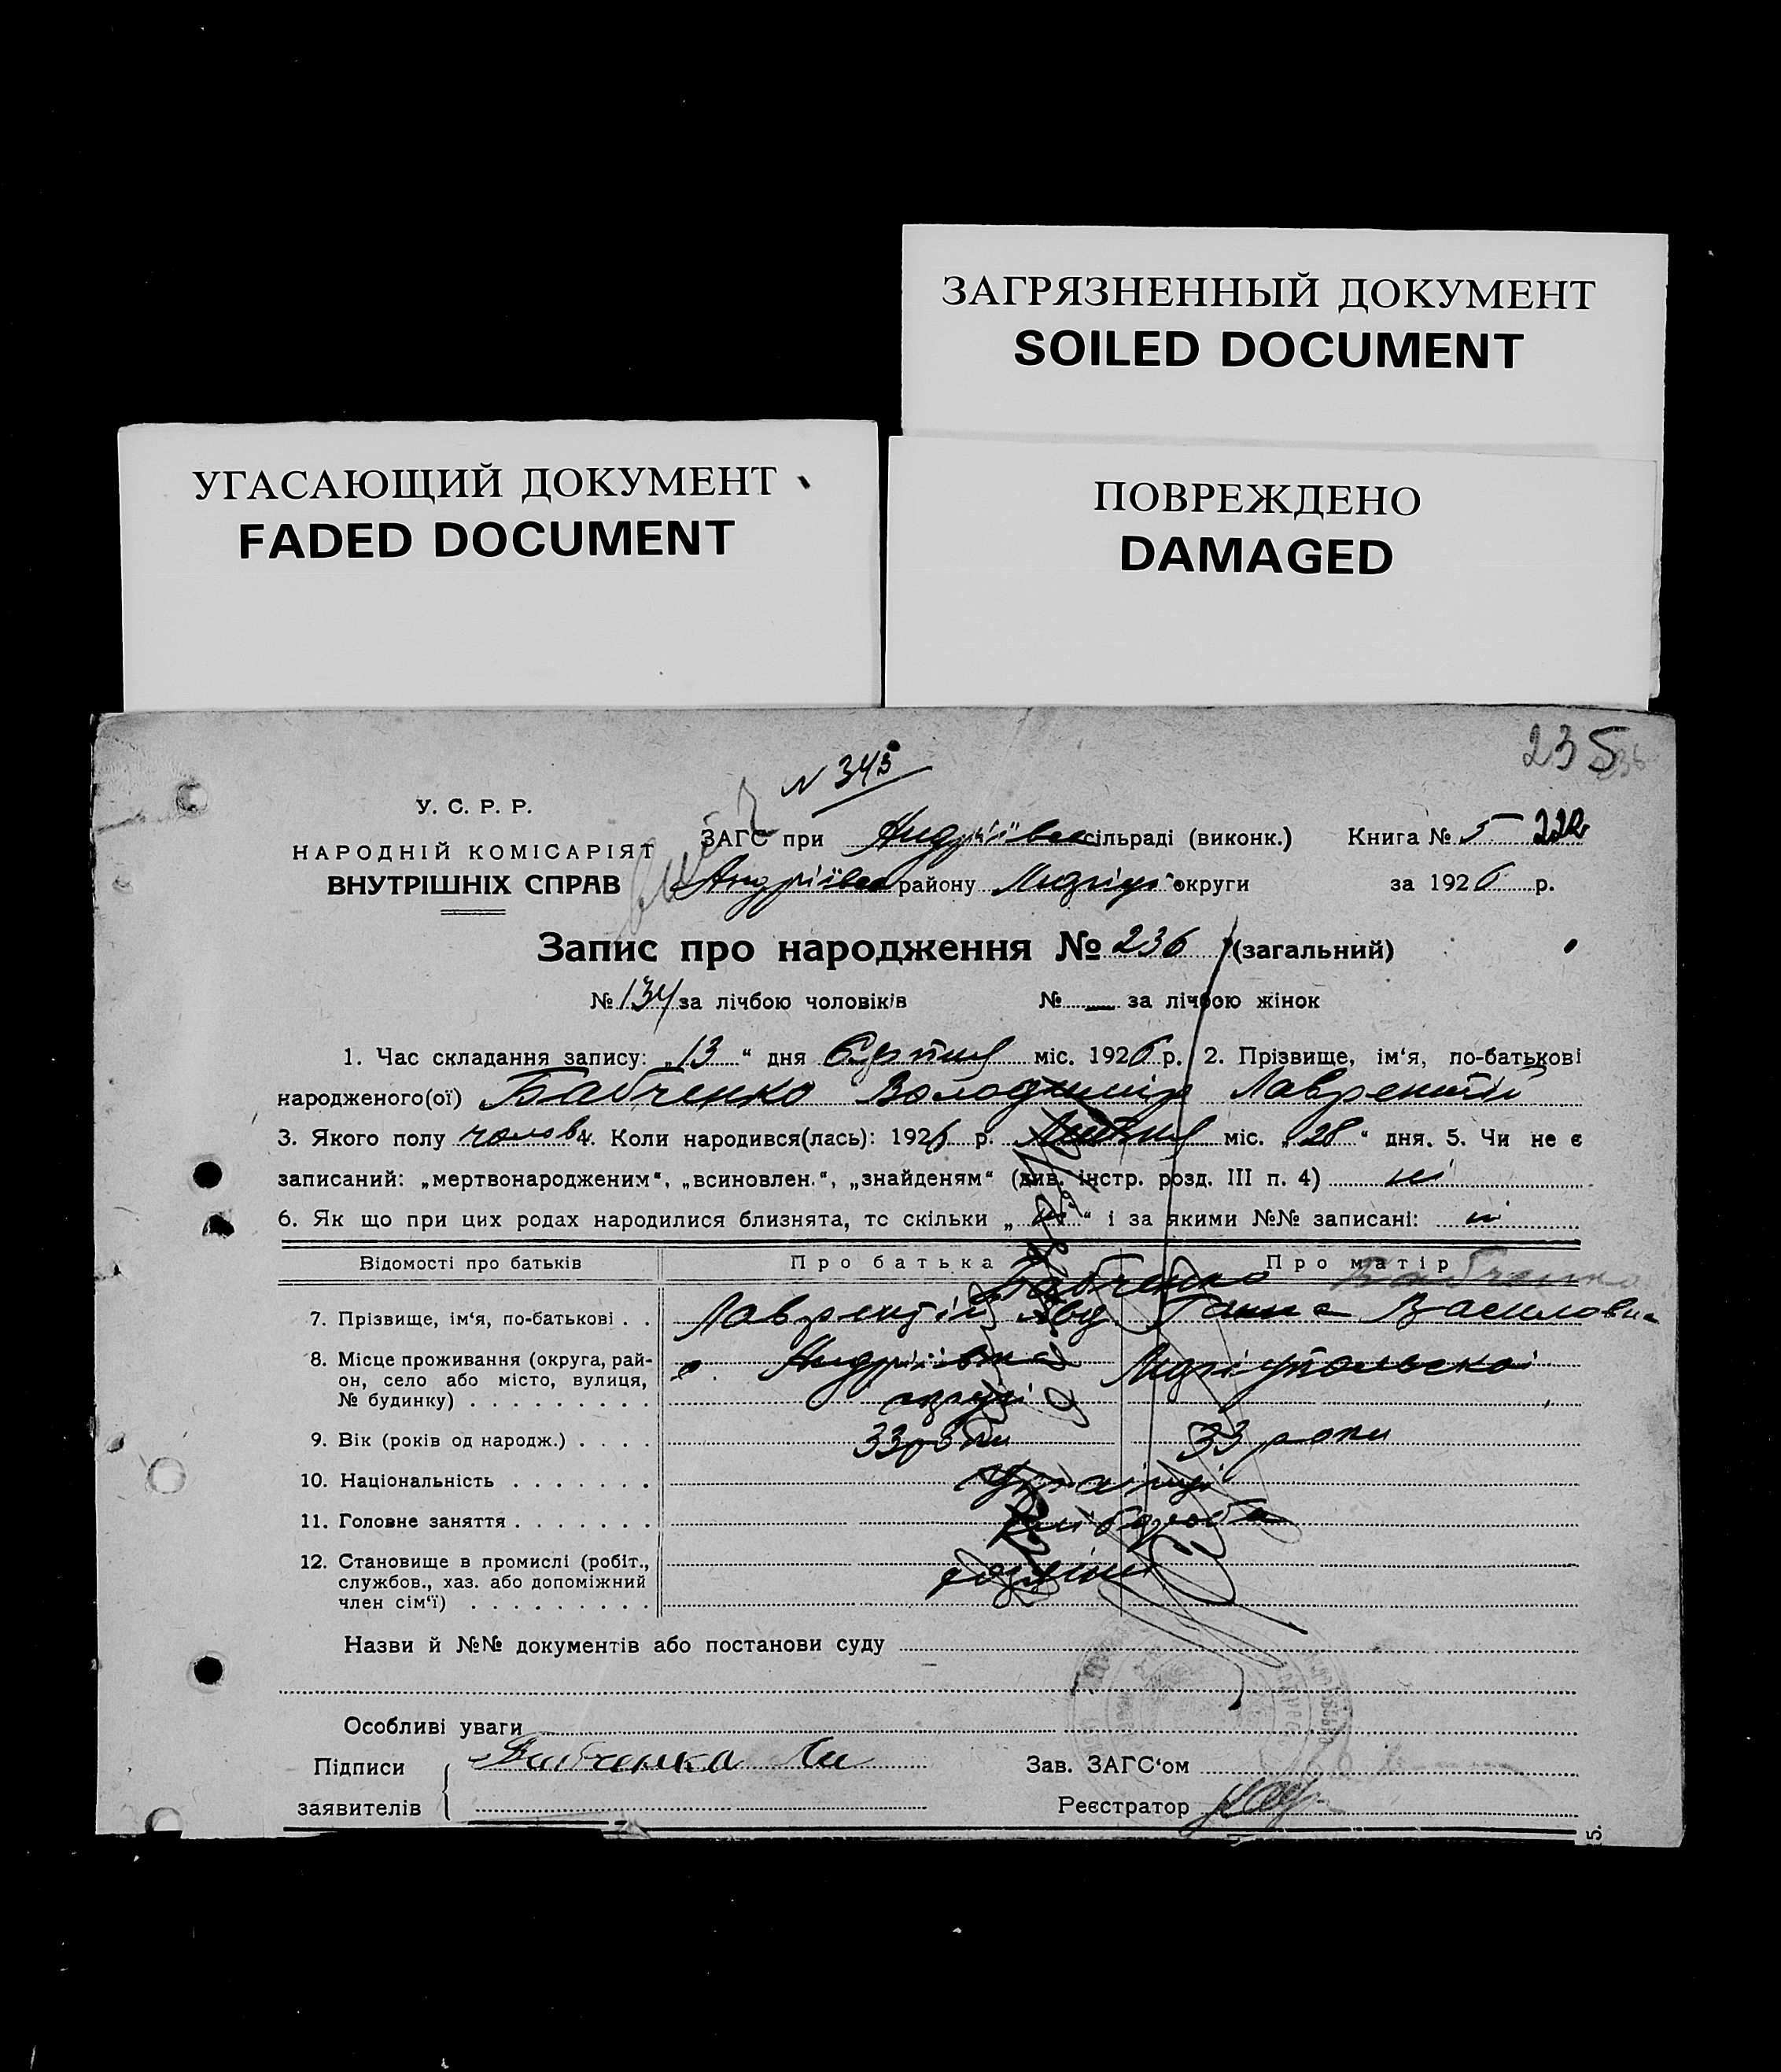 ЗАГРЯЗНЕННЫЙ ДОКУМЕНТ
SOILED DOCUMENT
УГАСАЮЩИЙ ДОКУМЕНТ
FADED DOCUMENT
ПОВРЕЖДЕНО
DAMAGED
235
N 345
У. С. Р. Р.
НАРОДНІЙ КОМІСАРІЯТ
ВНУТРІШНІХ СПРАВ
ЗАГС при Андріївс сільраді (виконк.) Книга № 5 222
Андріївс району Маріуп округи за 1926 р.
Запис про народження № 236 (загальний)
№ 134 за лічбою чоловіків № — за лічбою жінок
1. Час складання запису: „13“ дня Серпня міс. 1926 р. 2. Прізвище, ім‘я, по-батькові
народженого(ої) Бабченко Володимір Лаврентій
3. Якого полу чолов 4. Коли народився(лась): 1926 р. міс. „28“ дня. 5. Чи не є
записаний: „мертвонародженим“, „всиновлен.“, „знайденям“ (див. інстр. розд. III п. 4) ні
6. Як що при цих родах народилися близнята, то скільки „ні“ і за якими №№ записані: ні
Відомості про батьків Про батька Про матір
Бабченко Бабченко
7. Прізвище, ім‘я, по-батькові . . Лаврентій Ганна Василовна
8. Місце проживання (округа, рай-
он, село або місто, вулиця,
№ будинку) . . . . . . . . . с. Андріївка Маріупольскої
округі
9. Вік (років од народж.) . . . . 33 роки 33 роки
10. Національність . . . . . . . Українці
11. Головне заняття . . . . . . . Хліборобы
12. Становище в промислі (робіт.,
службов., хаз. або допоміжний
член сім‘ї) . . . . . . . . .
Назви й №№ документів або постанови суду
Особливі уваги
Підписи заявителів Бабченка
Зав. ЗАГС‘ом
Реєстратор